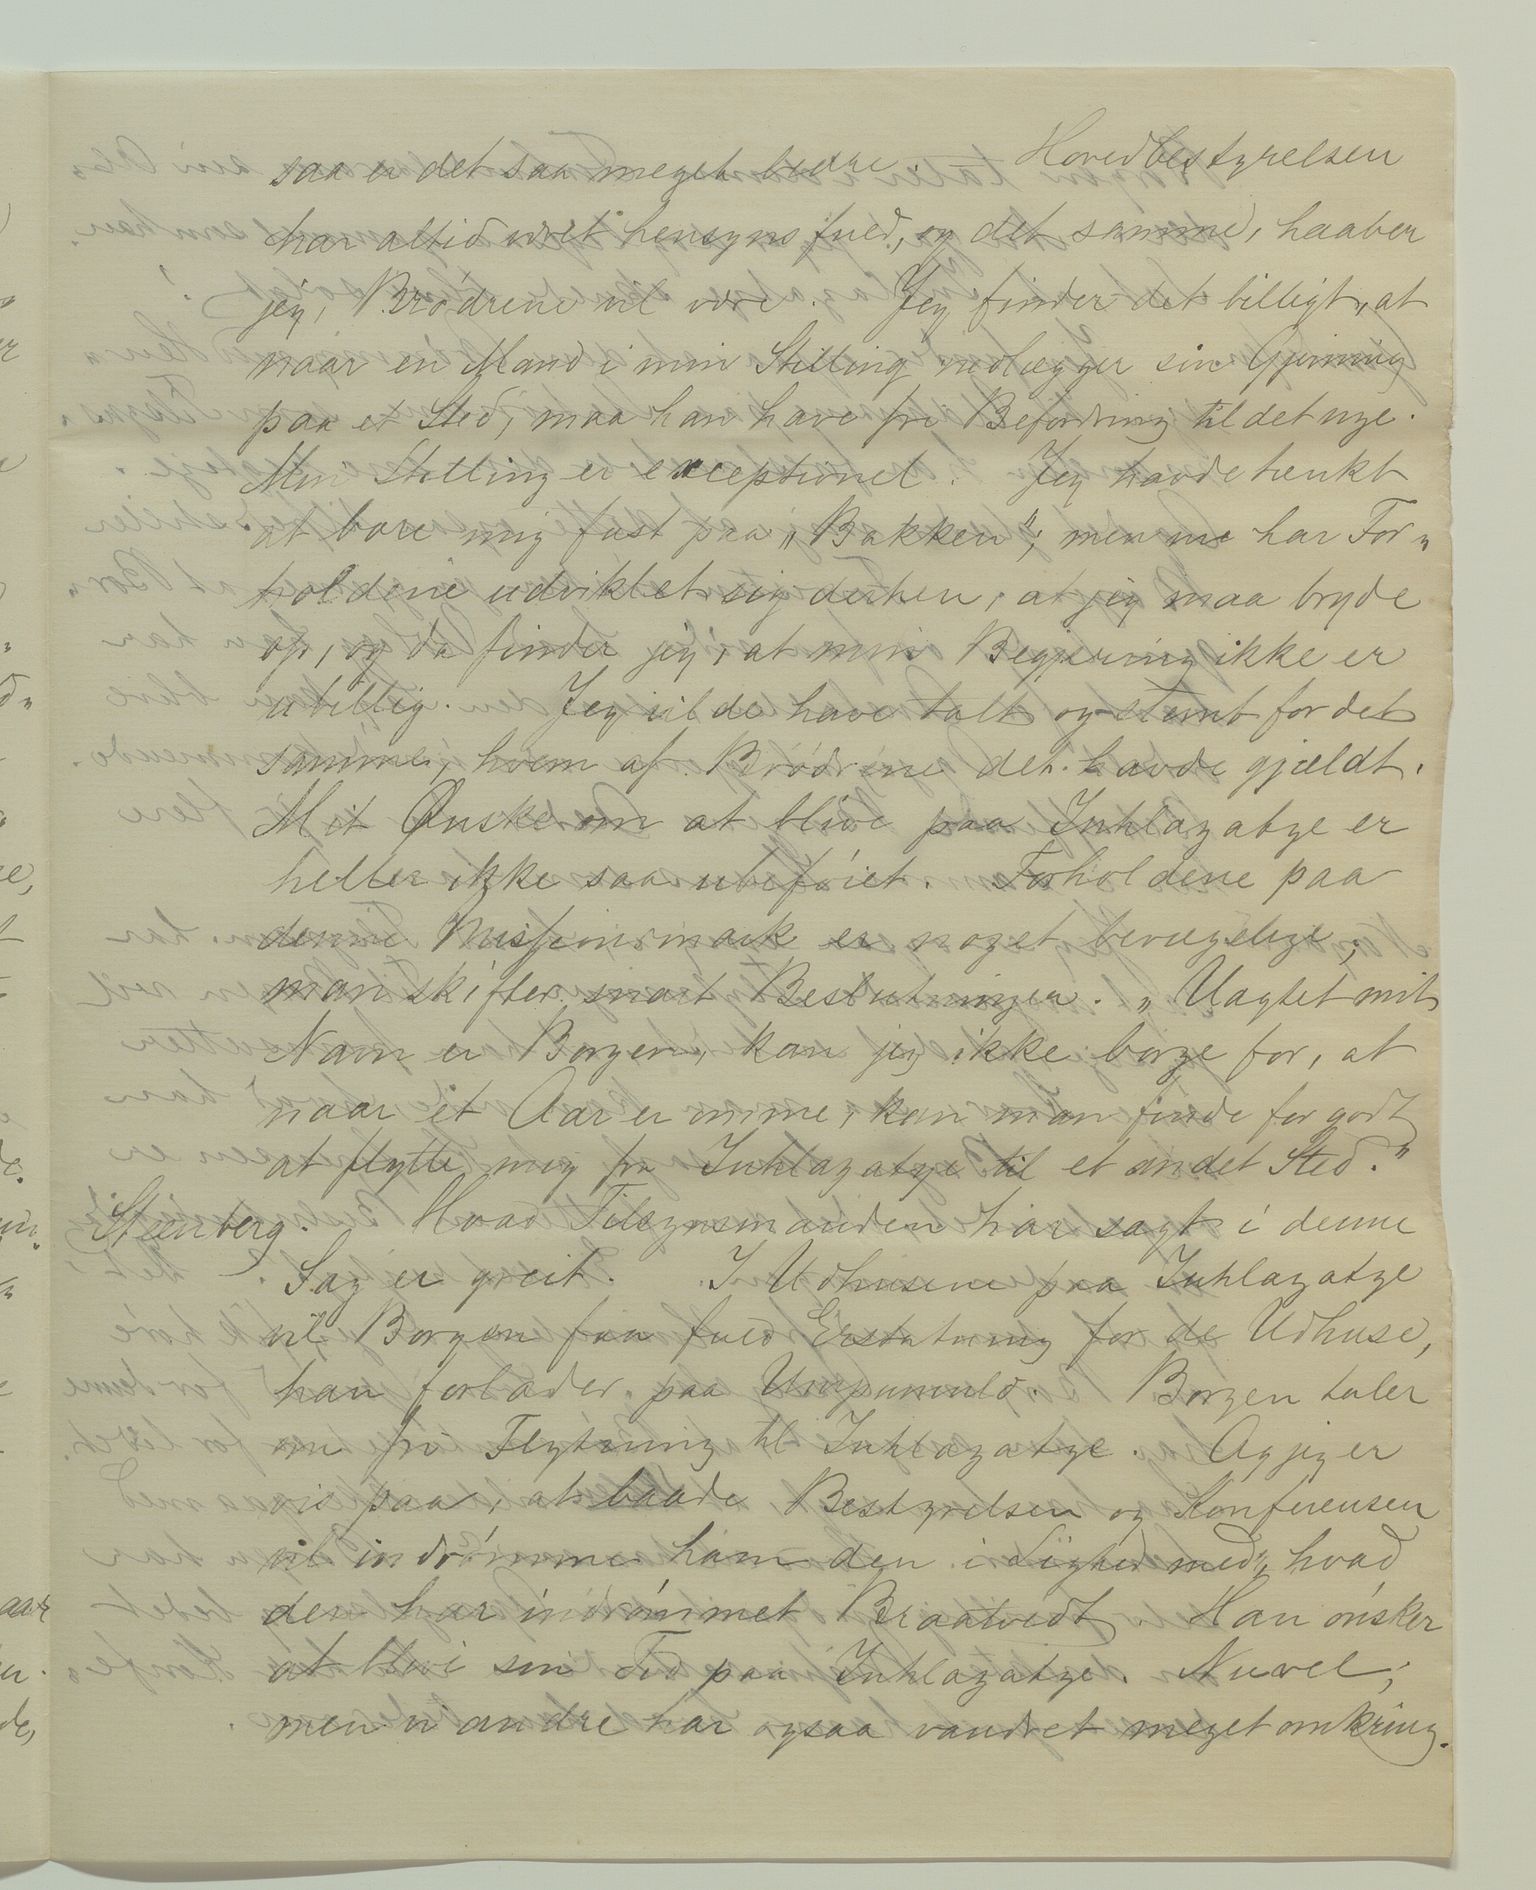 saa er det saa meget bedre. Hovedbestyrelsen
har altid været hensynsfuld, og det samme, haaber
jeg, Brødrene vil være. Jeg finder det billigt, at
naar en Mand i min Stilling nedlægger sin Gjerning
paa et Sted, maa han have fri Befordring til det nye.
Min Stilling er exceptionel. Jeg havde tænkt
at bore mig fast paa „Bakken“; men nu har For„
holdene udviklet sig derhen, at jeg maa bryde
op, og da finder jeg, at min Begjæring ikke er
ubillig. Jeg vilde have talt og stemt for det
samme, hvem af Brødrene det havde gjældt.
Mit Ønske om at blive paa Inhlazatye er
heller ikke saa ubeføiet. Forholdene paa
denne Missionsmark er noget bevægelige;
man skifter snart Beslutninger. „Uagtet mit
Navn er Borgen, kan jeg ikke borge for, at
naar et Aar er omme, kan man finde for godt
at flytte mig fra Inhlazatye til et andet Sted.“
Steenberg. Hvad Tilsynsmanden har sagt i denne
Sag er greit. I Udhusene paa Inhlazatye
vil Borgen faa fuld Erstatning for de Udhuse,
han forlader paa Umpumulo. Borgen taler
om fri Flytning til Inhlazatye. Og jeg er
vis paa, at baade Bestyrelsen og Konferensen
vil indrømme ham den i Lighed med, hvad
den har indrømmet Braatvedt. Han ønsker
at blive sin Tid paa Inhlazatye. Nuvel;
men vi andre har ogsaa vandret meget omkring.